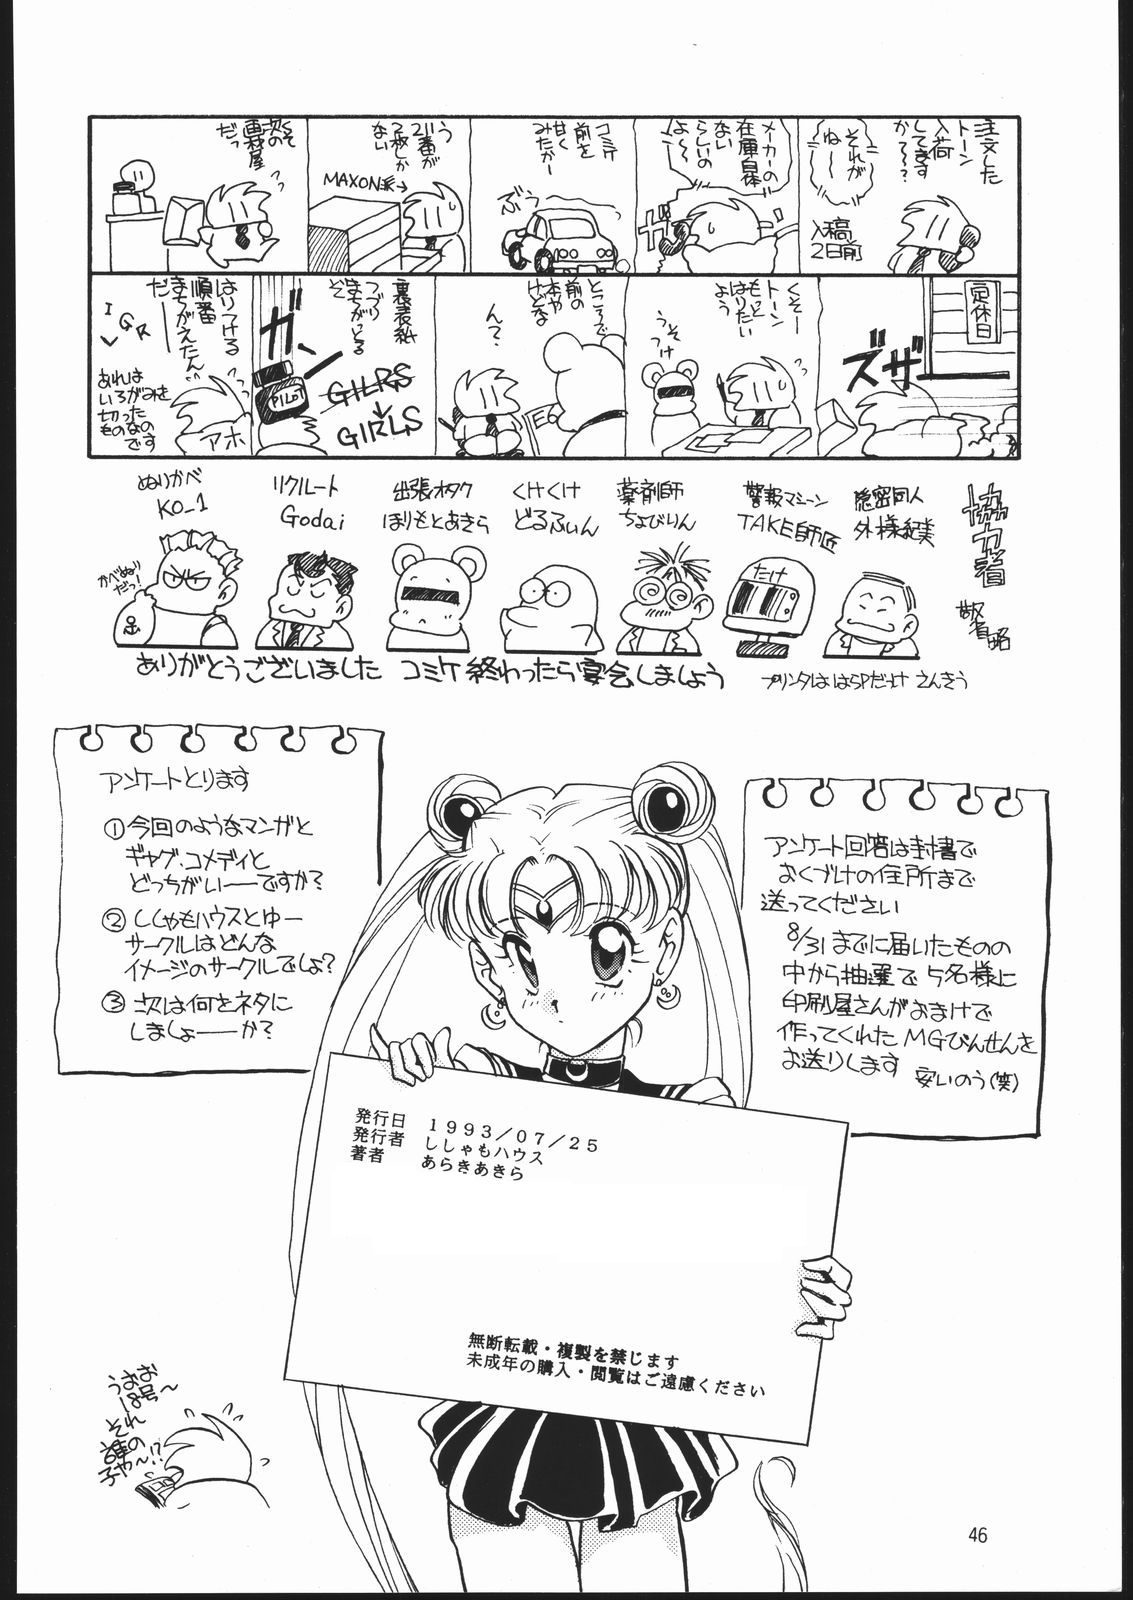 注文した
トーン
入荷
してます
か～～?
それが
ね～～
入稿
2日前
メーカーの
在庫自体
ない
らしいの
よ～～
ガ
コミケ
前を
甘く
みたか～
ぶう
う
21番が
2枚しか
ない
MAXON派→
次の
画材屋
だっ
定休日
ズザ
くそー
トーン
もっと
はりたい
よう
うっそっけ
ところで
前の
本や
けどな
ん?
裏表紙
つづり
まちがっとる
ぞ
ガン
PILOT
GILRS
GIRLS
はりつける
順番
まちがえたん
だ――
I
L G R
あれは
いろがみを
切った
ものなの
です
アホ
協力者
敬省略
隠密同人
外様純美
警報マシーン
TAKE師匠
たけ
薬剤師
ちょびりん
くけくけ
どるふぃん
出張オタク
ほりもとあきら
リクルート
Godai
ぬりかべ
KO_1
かべぬり
だっ!
ありがとうございました コミケ終わったら宴会しましょう
プリンタははらPだっけ さんきう
アンケートとります
①今回のようなマンガと
ギャグ・コメディと
どっちがい――ですか?
②ししゃもハウスとゆー
サークルはどんな
イメージのサークルでしょ?
③次は何をネタに
しましょ――か?
アンケート回答は封書で
おくづけの住所まで
送ってください
8/31までに届いたものの
中から抽選で5名様に
印刷屋さんがおまけで
作ってくれたMGびんせんを
お送りします 安いのう(笑)
発行日 1993/07/25
発行者 ししゃもハウス
著者 あらきあきら
無断転載・複製を禁じます
未成年の購入・閲覧はご遠慮ください
うおお
18号～
それ
誰の
子や～!?
46